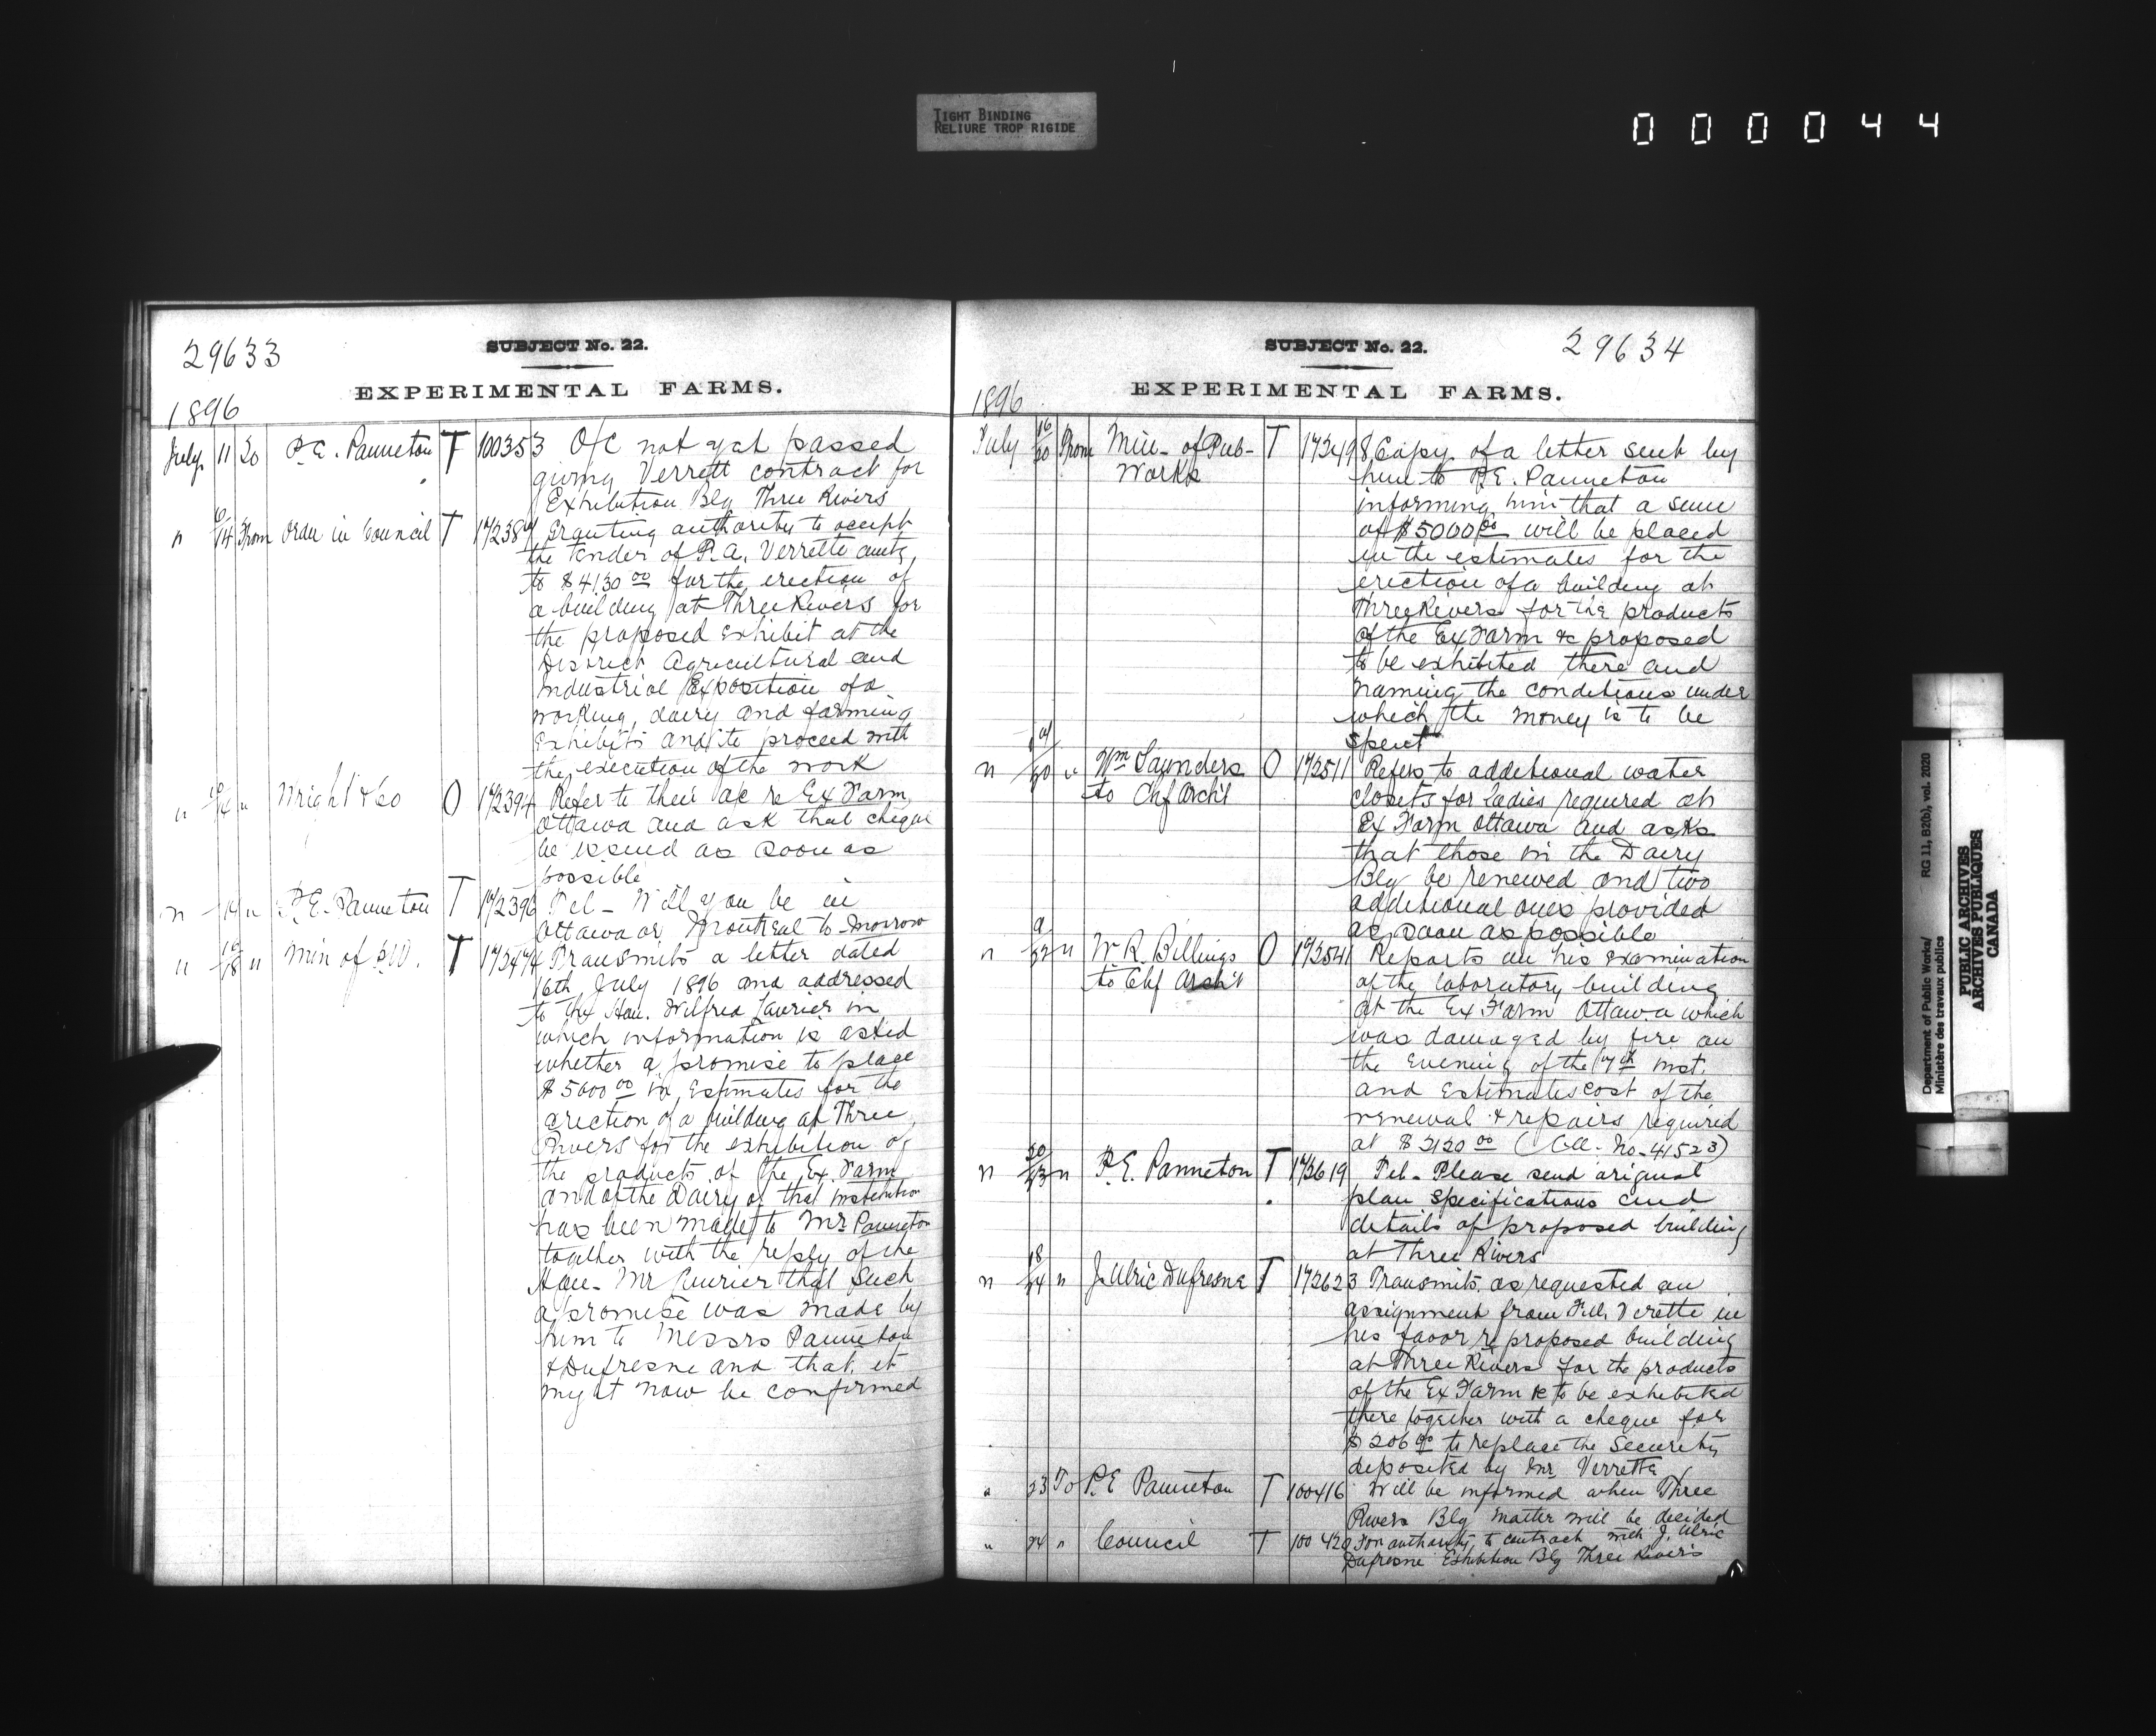 TIGHT BINDING
RELIURE TROP RIGIDE
000044
29633
SUBJECT No. 22.
EXPERIMENTAL FARMS.
1896
July 11 To P.E. Panneton T 100353 O/C not yet passed
giving Verrett contract for
Exhibition Blg Three Rivers
" 6/14 From Order in Council T 172387 Granting authority to accept
the tender of P.A. Verrette amtg
to $4130 00 for the erection of
a building at Three Rivers for
the proposed exhibit at the
District Agricultural and
Industrial Exposition of a
working, dairy and farming
exhibits and to proceed with
the execution of the work
" " Wright & Co O 172394 Refer to their a/c re Ex Farm
Ottawa and ask that cheque
be issued as soon as
possible
" 14 " P.E. Panneton T 172396 Tel - Will you be in
Ottawa or Montreal to-morrow
" 16/18 " Min of P.W. T 172474 Transmits a letter dated
16th July 1896 and addressed
to the Hon. Wilfred Laurier in
which information is asked
whether a promise to place
$5000 00 in Estimates for the
erection of a building at Three
Rivers for the exhibition of
the products of the Ex. Farm
and of the Dairy of that institution
has been made to Mr Panneton
together with the reply of the
Hon. Mr Laurier that such
a promise was made by
him to Messrs Panneton
& Dufresne and that it
might now be confirmed
SUBJECT No. 22.
29634
EXPERIMENTAL FARMS.
1896
July 16/20 From Min. of Pub- T 172498 Copy of a letter sent by
Works
him to P.E. Panneton
informing him that a sum
of $5000 00 will be placed
in the estimates for the
erection of a building at
Three Rivers for the products
of the Ex Farm &c proposed
to be exhibited there and
naming the conditions under
which the money is to be
spent
" 20 " Wm Saunders O 172511 Refers to additional water
to Chf Archt
closets for ladies required at
Ex Farm Ottawa and asks
that those in the Dairy
Blg be renewed and two
additional ones provided
as soon as possible
" 9/22 " W R. Billings O 172541 Reports on his examination
to Chf Archt
of the laboratory building
at the Ex Farm Ottawa which
was damaged by fire on
the evening of the 7th inst.
and estimates cost of the
renewal & repairs required
at $2120 00 (Coll. No. 41523)
" 20/23 " P.E. Panneton T 172619 Tel. Please send original
plan specifications and
details of proposed building
at Three Rivers
" 18/24 " J. Ulric Dufresne T 172623 Transmits as requested an
assignment from Verrette in
his favor re proposed building
at Three Rivers for the products
of the Ex Farm &c to be exhibited
there together with a cheque for
$206 00 to replace the security
deposited by Mr Verrette
" 23 To P.E Panneton T 100416 Will be informed when Three
Rivers Blg matter will be decided
" 24 " Council T 100420 For authority to contract with J. Ulric
Dufresne Exhibition Blg Three Rivers
Department of Public Works/ RG 11, B2(b), vol. 2020
Ministère des travaux publics
PUBLIC ARCHIVES
ARCHIVES PUBLIQUES
CANADA